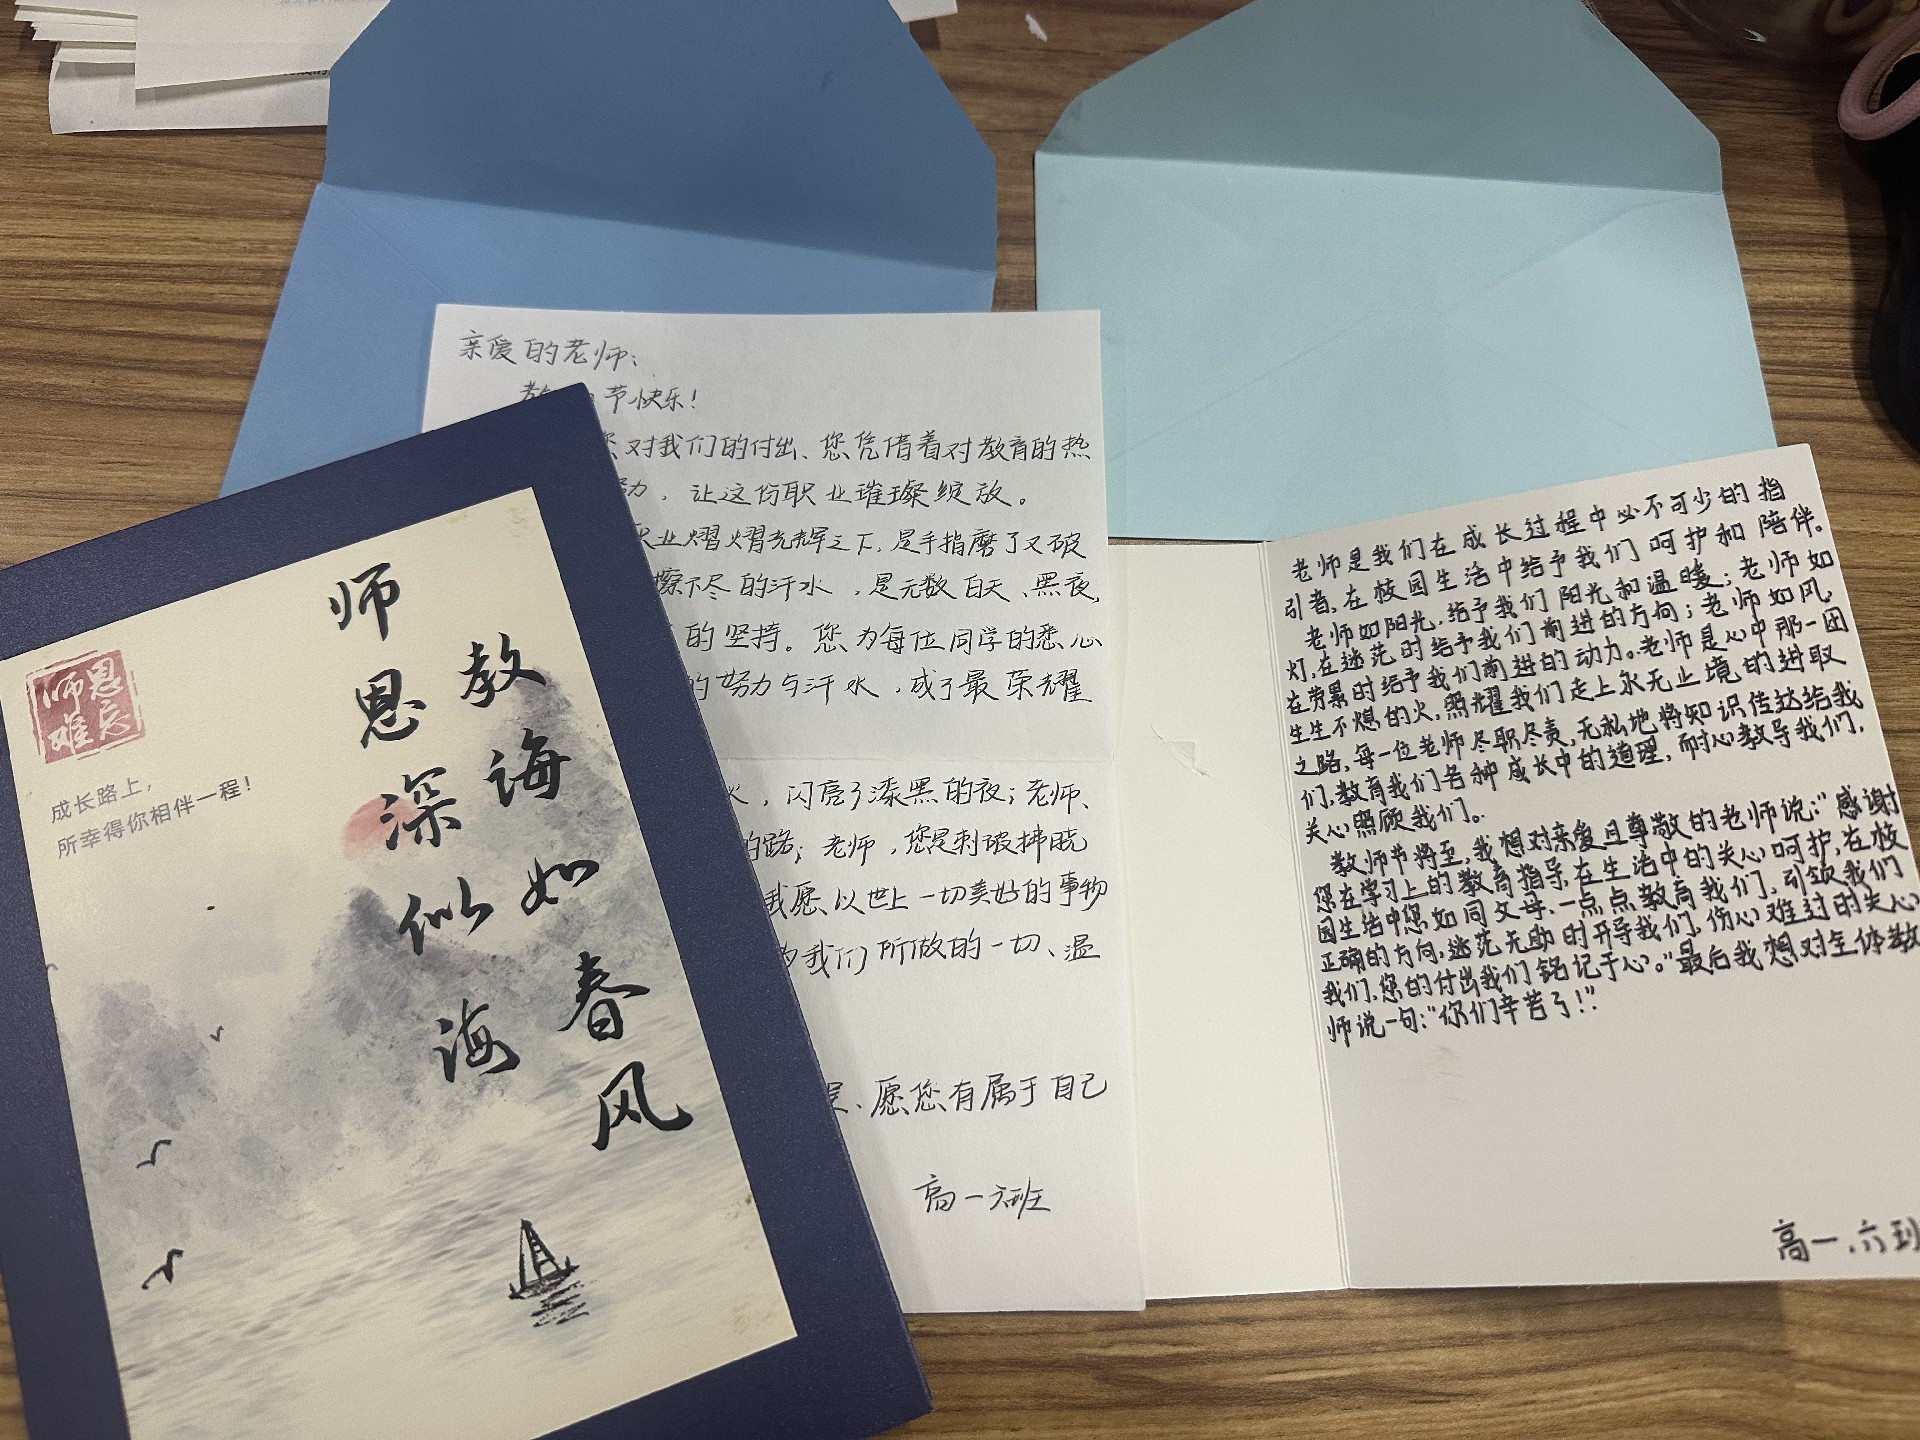 师恩难忘
成长路上，
所幸得你相伴一程！
师恩深似海
教诲如春风
亲爱的老师：
节快乐！
对我们的付出、您凭借着对教育的热
，让这份职业璀璨绽放。
业熠熠光辉之下，是手指磨了又破
擦不尽的汗水，是无数白天、黑夜，
的坚持。您为每位同学的悉心
的努力与汗水，成了最荣耀
，闪亮了漆黑的夜；老师、
的路；老师，您是刺破拂晓
我愿以世上一切美好的事物
为我们所做的一切、温
愿您有属于自己
高一六班
老师是我们在成长过程中必不可少的指
引者，在校园生活中给予我们呵护和陪伴。
老师如阳光，给予我们阳光和温暖；老师如
灯，在迷茫时给予我们前进的方向；老师如风，
在劳累时给予我们前进的动力。老师是心中那一团
生生不熄的火，照耀我们走上永无止境的进取
之路，每一位老师尽职尽责，无私地将知识传达给我
们，教育我们各种成长中的道理，耐心教导我们，
关心照顾我们。
教师节将至，我想对亲爱且尊敬的老师说：“感谢
您在学习上的教育指导，在生活中的关心呵护，在校
园生活中您如同父母，一点点教育我们，引领我们
正确的方向，迷茫无助时开导我们，伤心难过时关心
我们，您的付出我们铭记于心。”最后我想对全体教
师说一句：“你们辛苦了！”
高一.六班